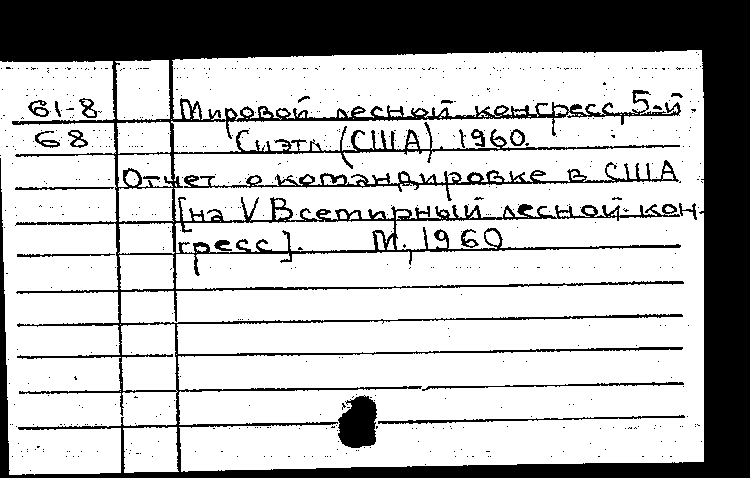 61-8 Мировой лесной конгресс, 5-й.
68 Сиэтл (США). 1960.
Отчет о командировке в США
[на V Всемирный лесной кон-
гресс]. М., 1960